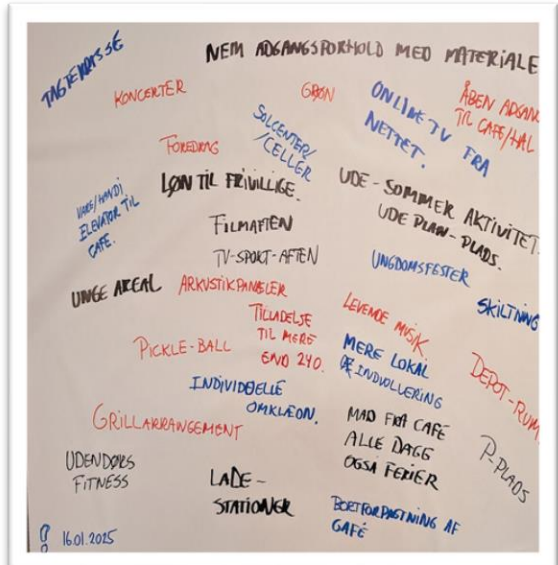 TAGTERRASSE
NEM ADGANGSFORHOLD MED MATERIALE
KONCERTER
GRØN
ONLINE TV FRA
NETTET.
ÅBEN ADGAN
TIL CAFE/HAL
SOLCENTER/
/CELLER
FOREDRAG
LØN TIL FRIVILLIGE.
UDE-SOMMER AKTIVITET.
UDE PLAN-PLADS.
VARE/HANDI
ELEVATOR TIL
CAFE.
FILMAFTEN
TV-SPORT-AFTEN
UNGDOMSFESTER
UNGE AREAL
ARKUSTIKPANELER
SKILTNING
TILLADELSE
TIL MERE
END 240.
LEVENDE MUSIK.
PICKLE-BALL
MERE LOKAL
INDVOLLERING
DEPOT-RUM
INDIVIDUELLE
OMKLÆDN.
GRILLARRANGEMENT
MAD FRA CAFE
ALLE DAGE
OGSÅ FERIER
P-PLADS
UDENDØRS
FITNESS
LADE-
STATIONER
BORTFORPAGTNING AF
CAFÉ
16.01.2025